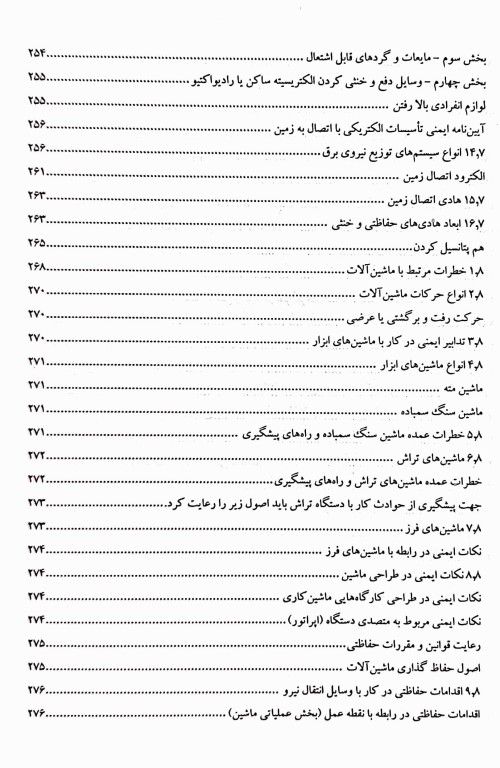 بخش سوم – مایعات و گردهای قابل اشتعال ........ ۲۵۴
بخش چهارم – وسایل دفع و خنثی کردن الکتریسیته ساکن یا رادیواکتیو ........ ۲۵۵
لوازم انفرادی بالا رفتن ........ ۲۵۵
آیین‌نامه ایمنی تأسیسات الکتریکی با اتصال به زمین ........ ۲۵۶
۱۴٫۷ انواع سیستم‌های توزیع نیروی برق ........ ۲۵۶
الکترود اتصال زمین ........ ۲۶۱
۱۵٫۷ هادی اتصال زمین ........ ۲۶۳
۱۶٫۷ ابعاد هادی‌های حفاظتی و خنثی ........ ۲۶۳
هم پتانسیل کردن ........ ۲۶۵
۱٫۸ خطرات مرتبط با ماشین‌آلات ........ ۲۶۸
۲٫۸ انواع حرکات ماشین‌آلات ........ ۲۷۰
حرکت رفت و برگشتی یا عرضی ........ ۲۷۰
۳٫۸ تدابیر ایمنی در کار با ماشین‌های ابزار ........ ۲۷۰
۴٫۸ انواع ماشین‌های ابزار ........ ۲۷۱
ماشین مته ........ ۲۷۱
ماشین سنگ سمباده ........ ۲۷۱
۵٫۸ خطرات عمده ماشین سنگ سمباده و راه‌های پیشگیری ........ ۲۷۱
۶٫۸ ماشین‌های تراش ........ ۲۷۲
خطرات عمده ماشین‌های تراش و راه‌های پیشگیری ........ ۲۷۲
جهت پیشگیری از حوادث کار با دستگاه تراش باید اصول زیر را رعایت کرد ........ ۲۷۳
۷٫۸ ماشین‌های فرز ........ ۲۷۳
نکات ایمنی در رابطه با ماشین‌های فرز ........ ۲۷۴
۸٫۸ نکات ایمنی در طراحی ماشین ........ ۲۷۴
نکات ایمنی در طراحی کارگاه‌هایی ماشین‌کاری ........ ۲۷۴
نکات ایمنی مربوط به متصدی دستگاه (اپراتور) ........ ۲۷۴
رعایت قوانین و مقررات حفاظتی ........ ۲۷۵
اصول حفاظ گذاری ماشین‌آلات ........ ۲۷۵
۹٫۸ اقدامات حفاظتی در کار با وسایل انتقال نیرو ........ ۲۷۶
اقدامات حفاظتی در رابطه با نقطه عمل (بخش عملیاتی ماشین) ........ ۲۷۶